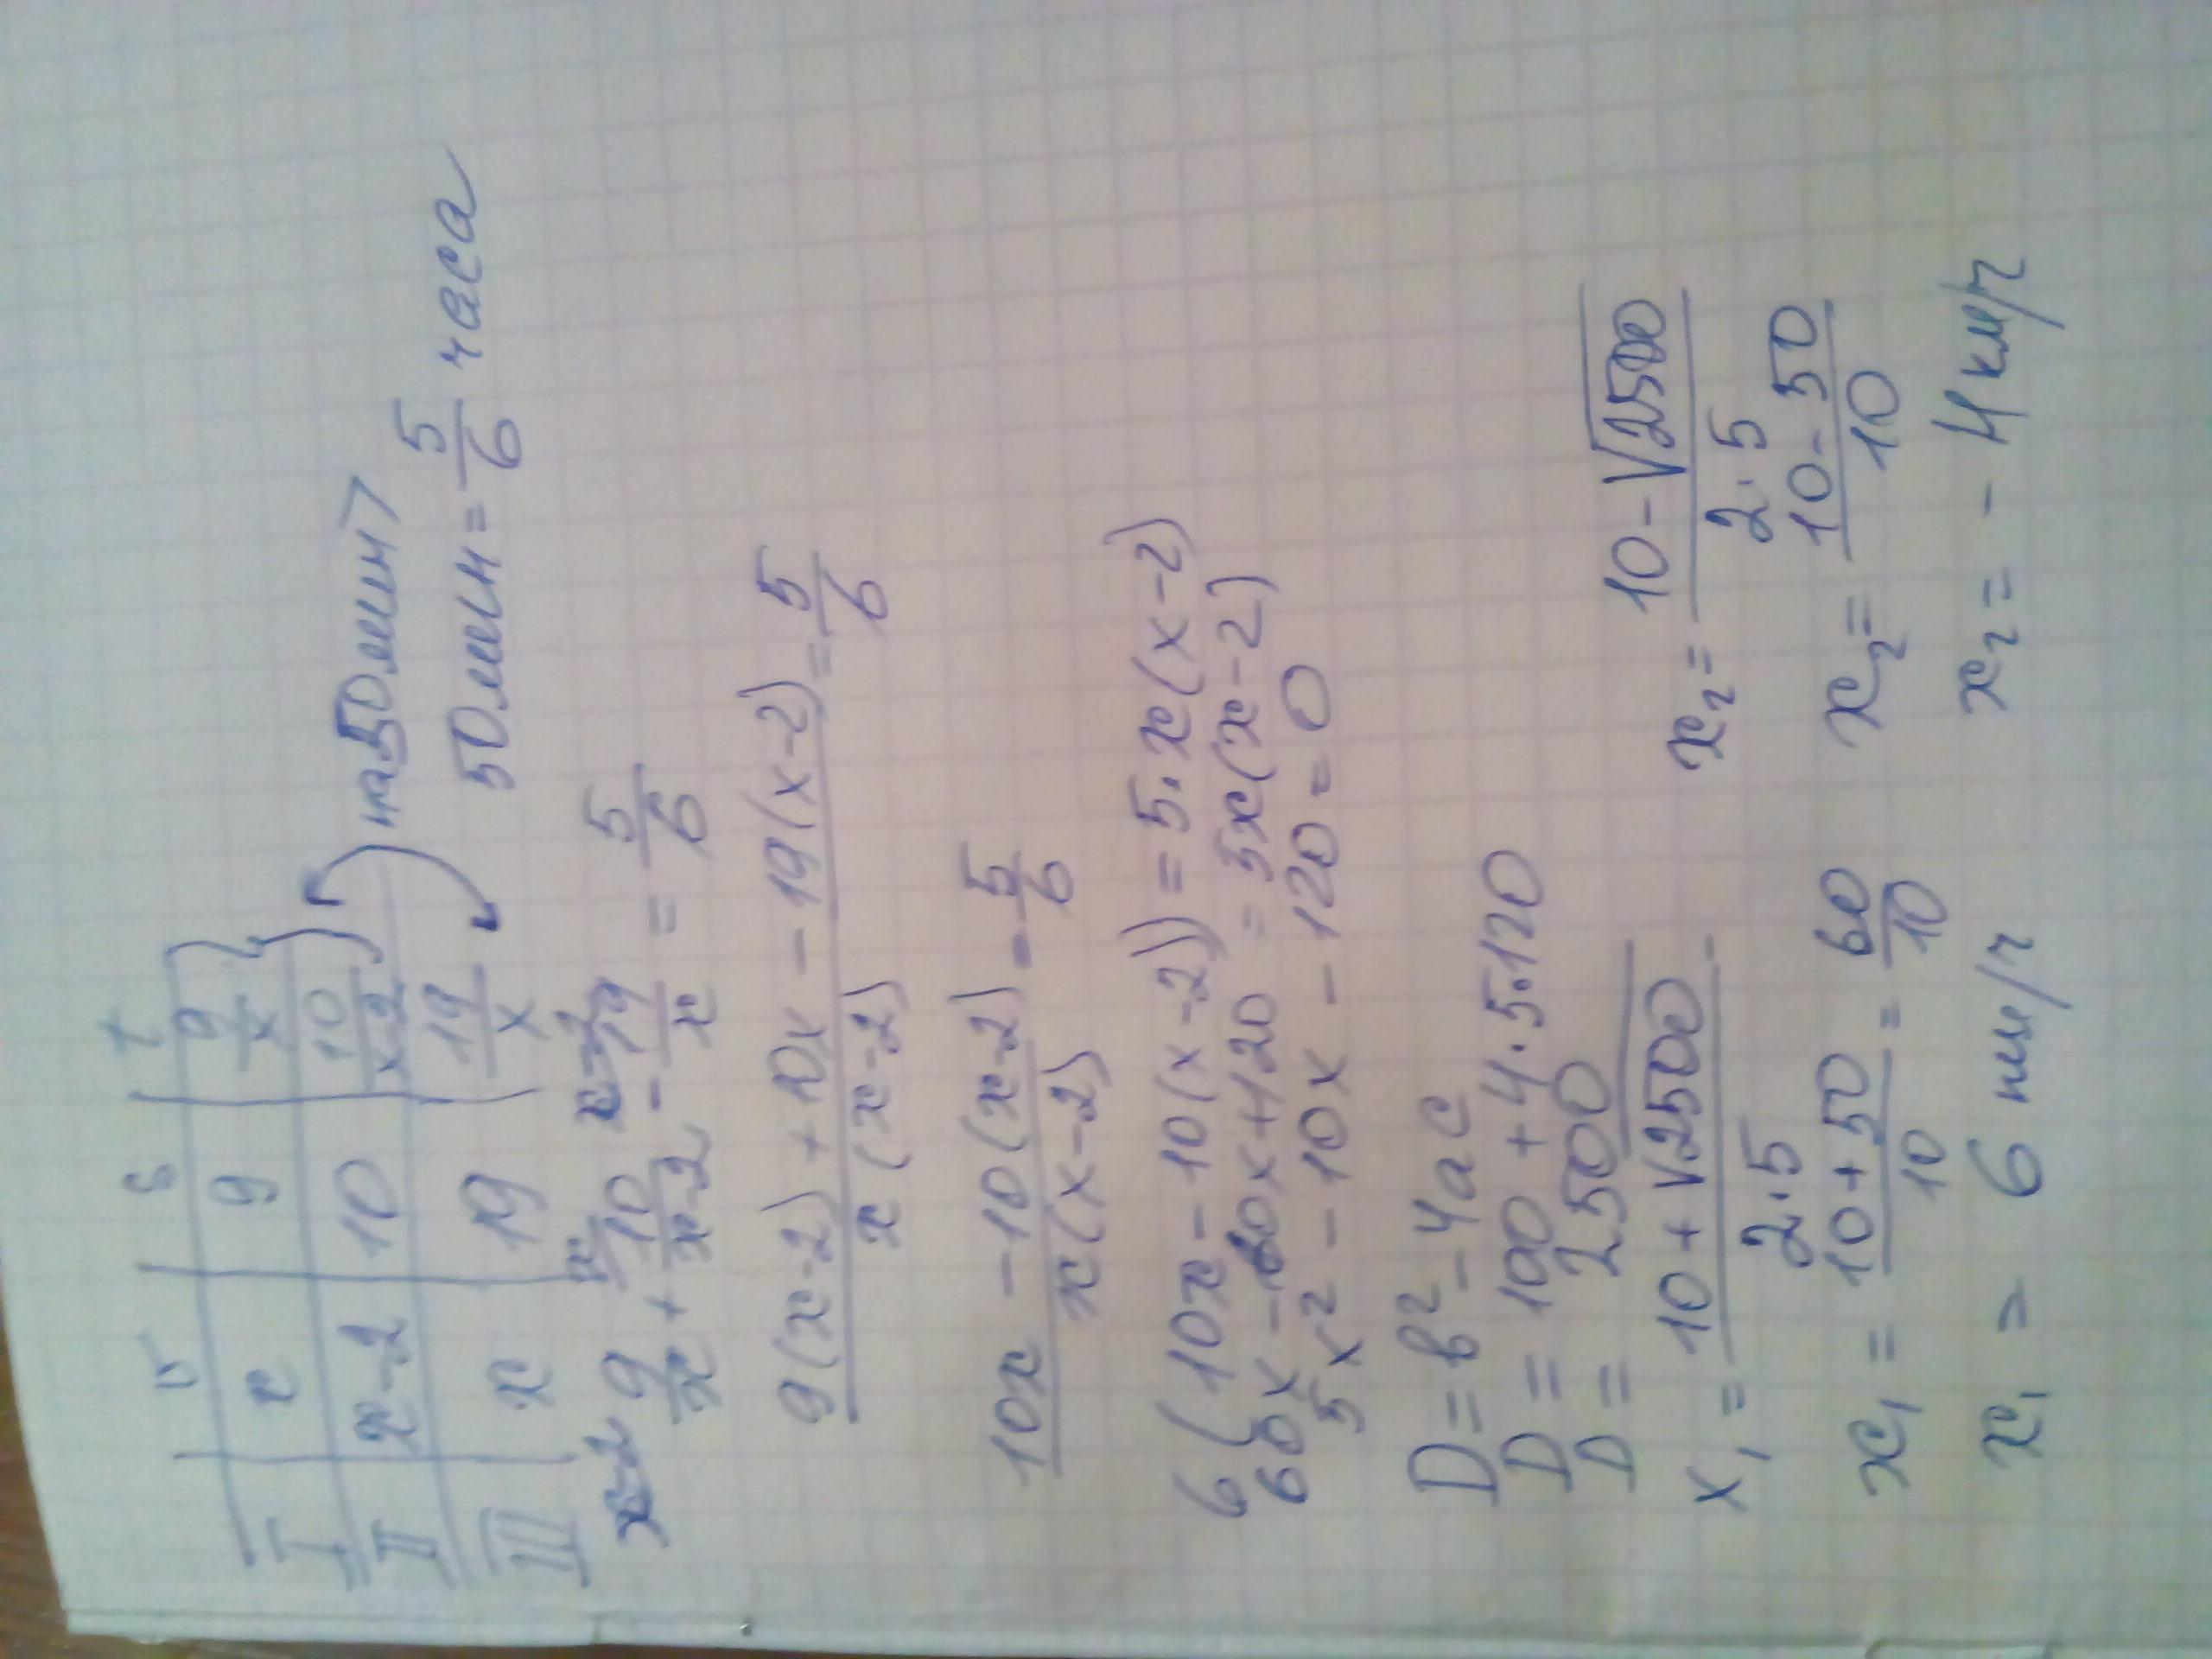 v s t
I x 9 9/x
II x-2 10 10/x-2 на 50 мин >
III x 19 19/x 50 мин = 5/6 часа
9/x + 10/x-2 - 19/x = 5/6
9(x-2) + 10x - 19(x-2) / x(x-2) = 5/6
10x - 10(x-2) / x(x-2) = 5/6
6(10x - 10(x-2)) = 5·x(x-2)
60x - 60x + 120 = 5x(x-2)
5x² - 10x - 120 = 0
D = b² - 4ac
D = 100 + 4·5·120
D = 2500
x₁ = 10 + √2500 / 2·5 x₂ = 10 - √2500 / 2·5
x₁ = 10 + 50 / 10 = 60/10 x₂ = 10 - 50 / 10
x₁ = 6 км/ч x₂ = - 4 км/ч